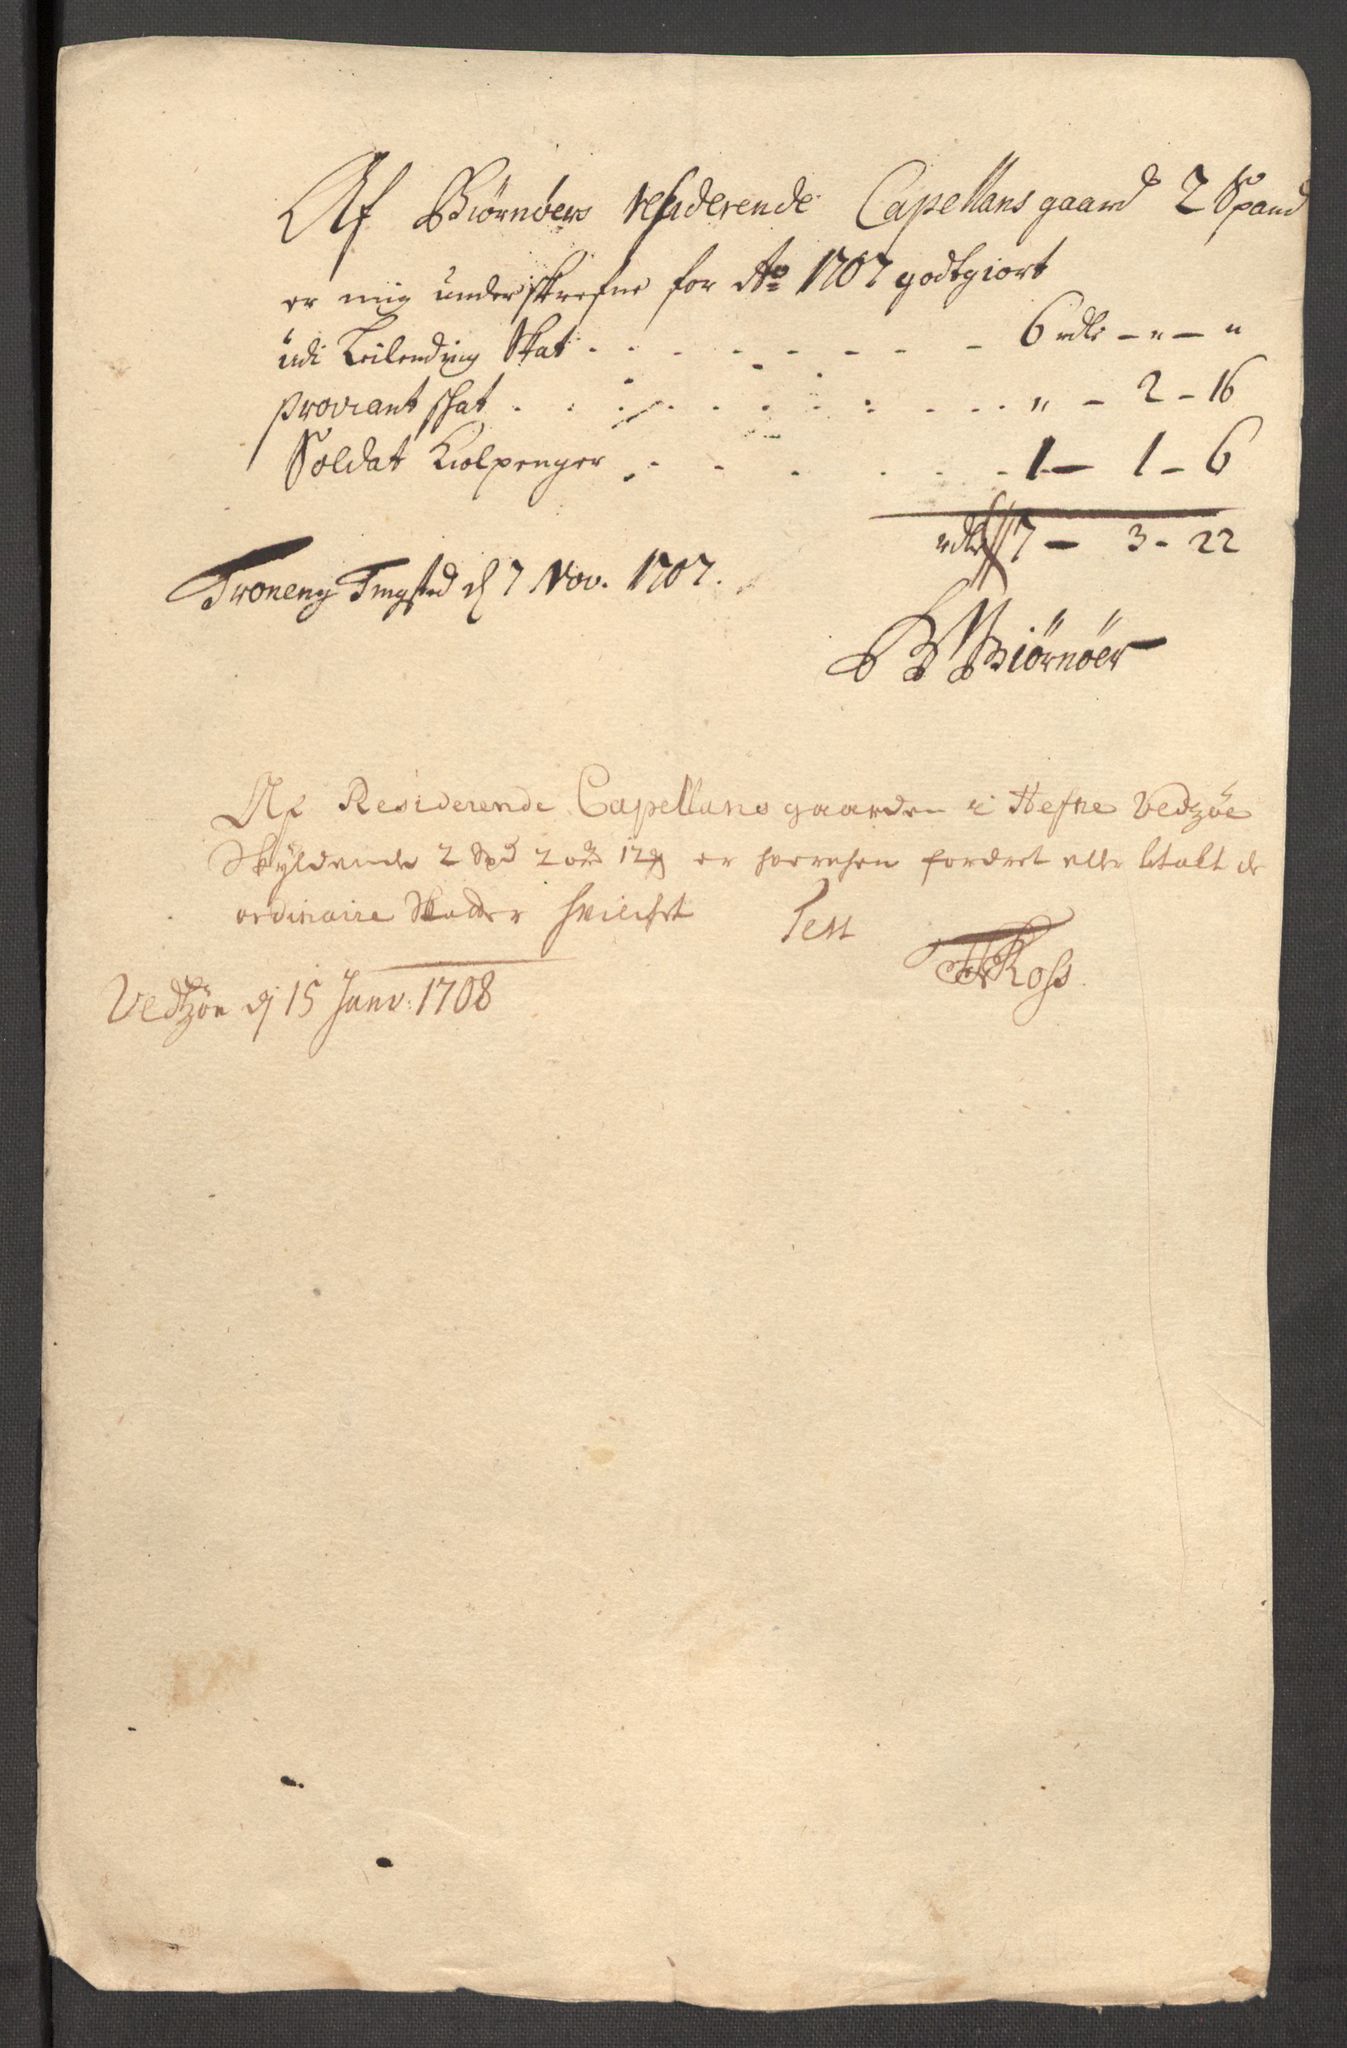 Af Biørnøers residerende Capellans gaard 2 Spand
er mig underskrefne for Ao 1707 godtgiort
udi Leilending Skat . . . . . . . . 6 rdlr – " – "
proviant skat . . . . . . . . " – 2 – 16
Soldat Kiolpenger . . . . . . 1 – 1 – 6
rdlr 7 – 3 – 22
Tingsted d 7 Nov. 1707.
B Biørnøer
Af Residerende Capellans gaarden i Hefne Vedzøe
Skyldende 2 Spd 2 12 er fordret eller betalt de
ordinaire Skatter hvilchet Test
Ross
Vedzøe d 15 Janv: 1708